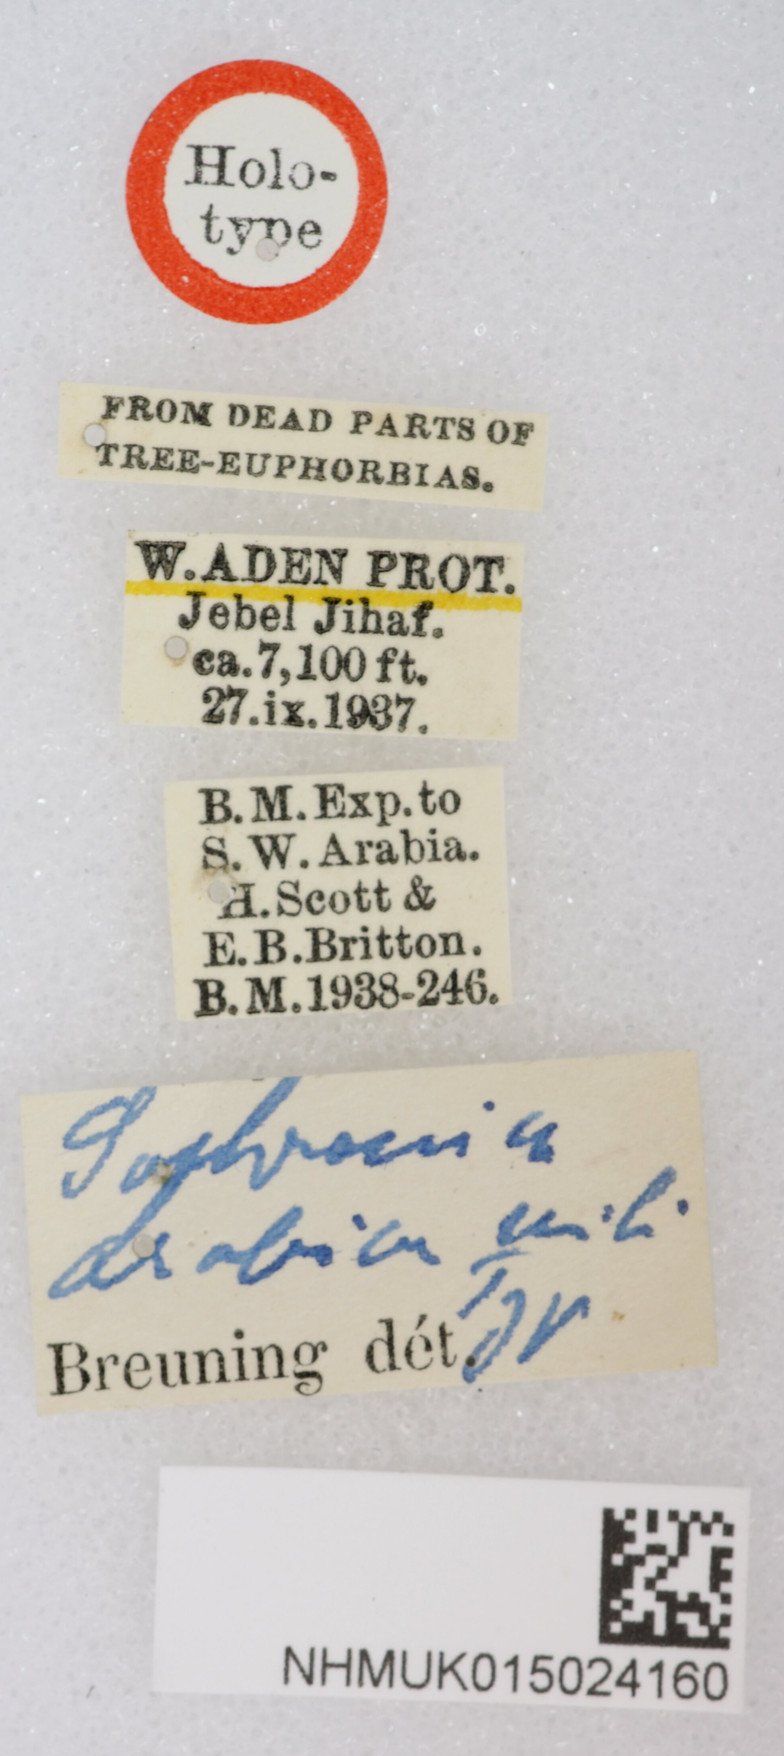 Holo-
type
FROM DEAD PARTS OF
TREE-EUPHORBIAS.
W. ADEN PROT.
Jebel Jihaf.
ca. 7,100 ft.
27.ix.1937.
B.M. Exp. to
S.W. Arabia.
H. Scott &
E.B. Britton.
B.M. 1938-246.
Sophronica
arabica mihi
Typ
Breuning dét.
NHMUK015024160